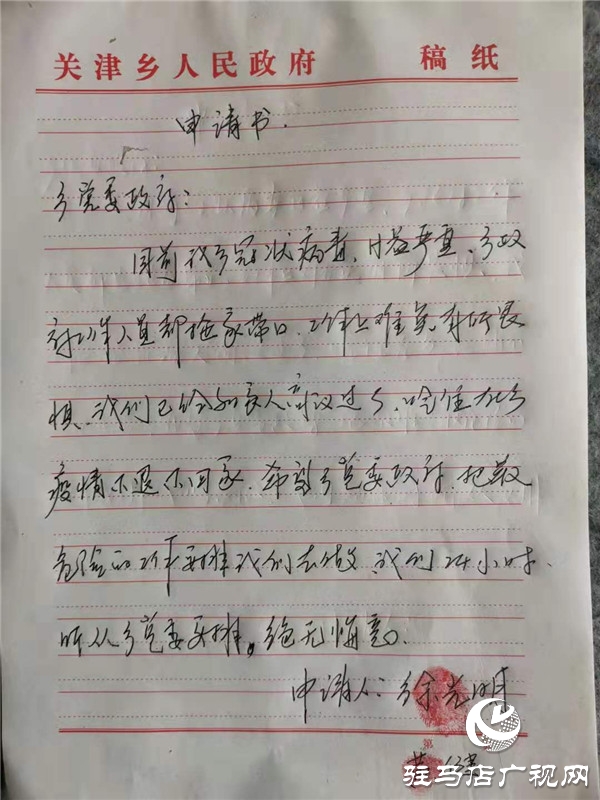 关津乡人民政府 稿纸
申请书.
乡党委政府:
目前我乡冠状病毒,日益严重、乡政
府工作人员都拖家带口、工作上难免有所畏
惧、我们已给和家人商议过了、吃住在乡
疫情不退不回家、希望乡党委政府、把最
危险的工作安排我们去做、我们24小时、
听从乡党委安排,绝无悔意。
申请人:徐光明
第
驻马店广视网